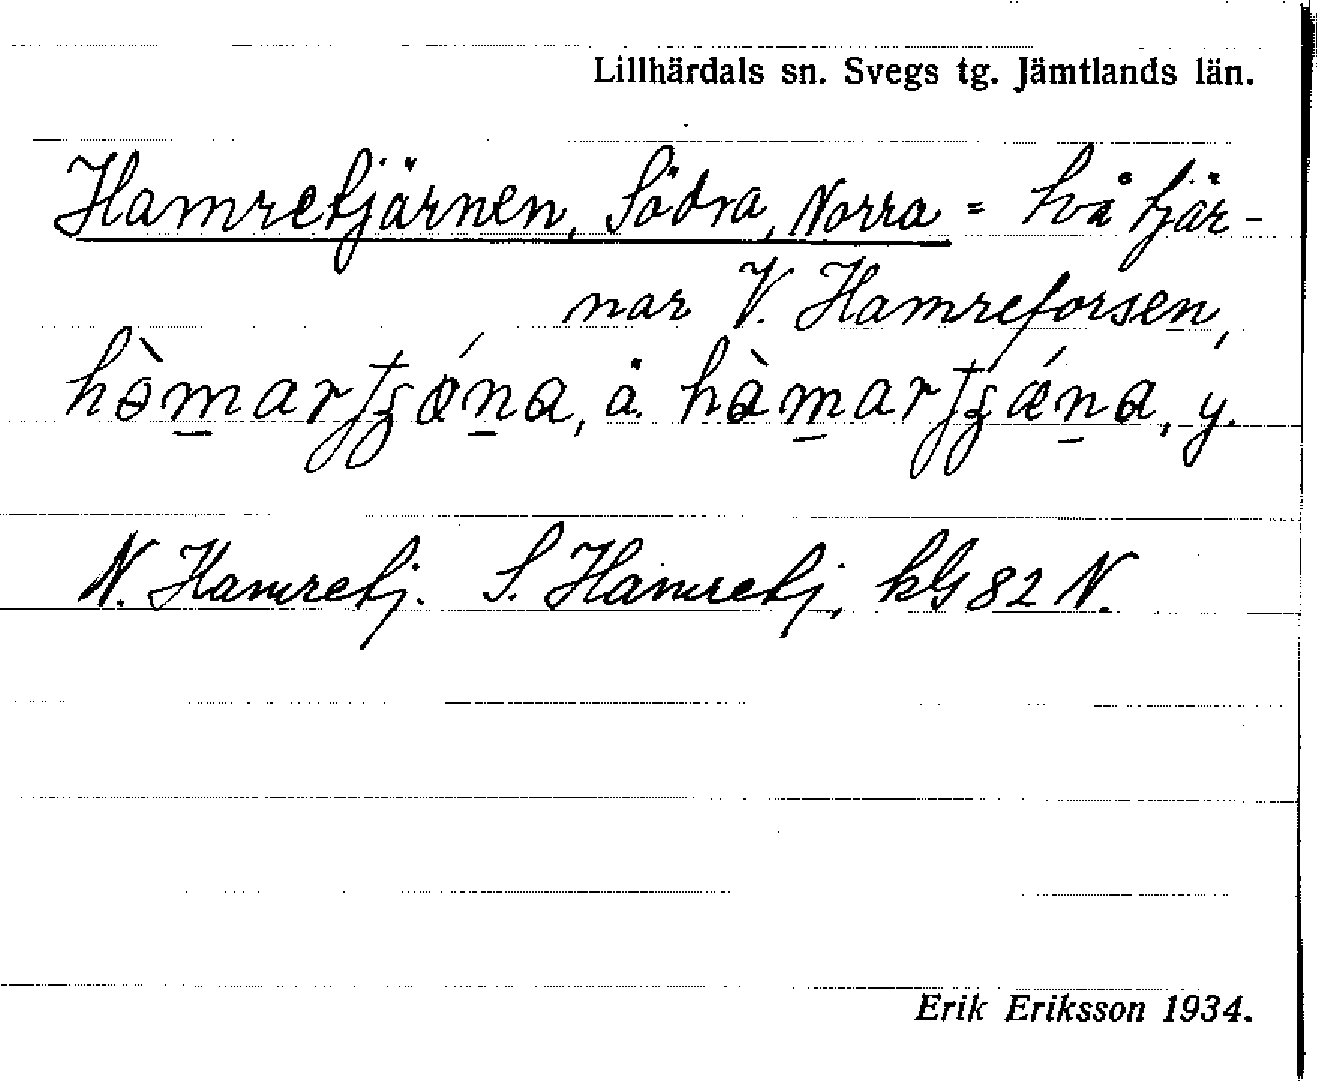 Lillhärdals sn. Svegs tg. Jämtlands län.
Hamretjärnen, Södra, Norra = två tjär-
nar V. Hamreforsen,
å. y.
N. Hamretj. S. Hamretj, kG 82 N.
Erik Eriksson 1934.